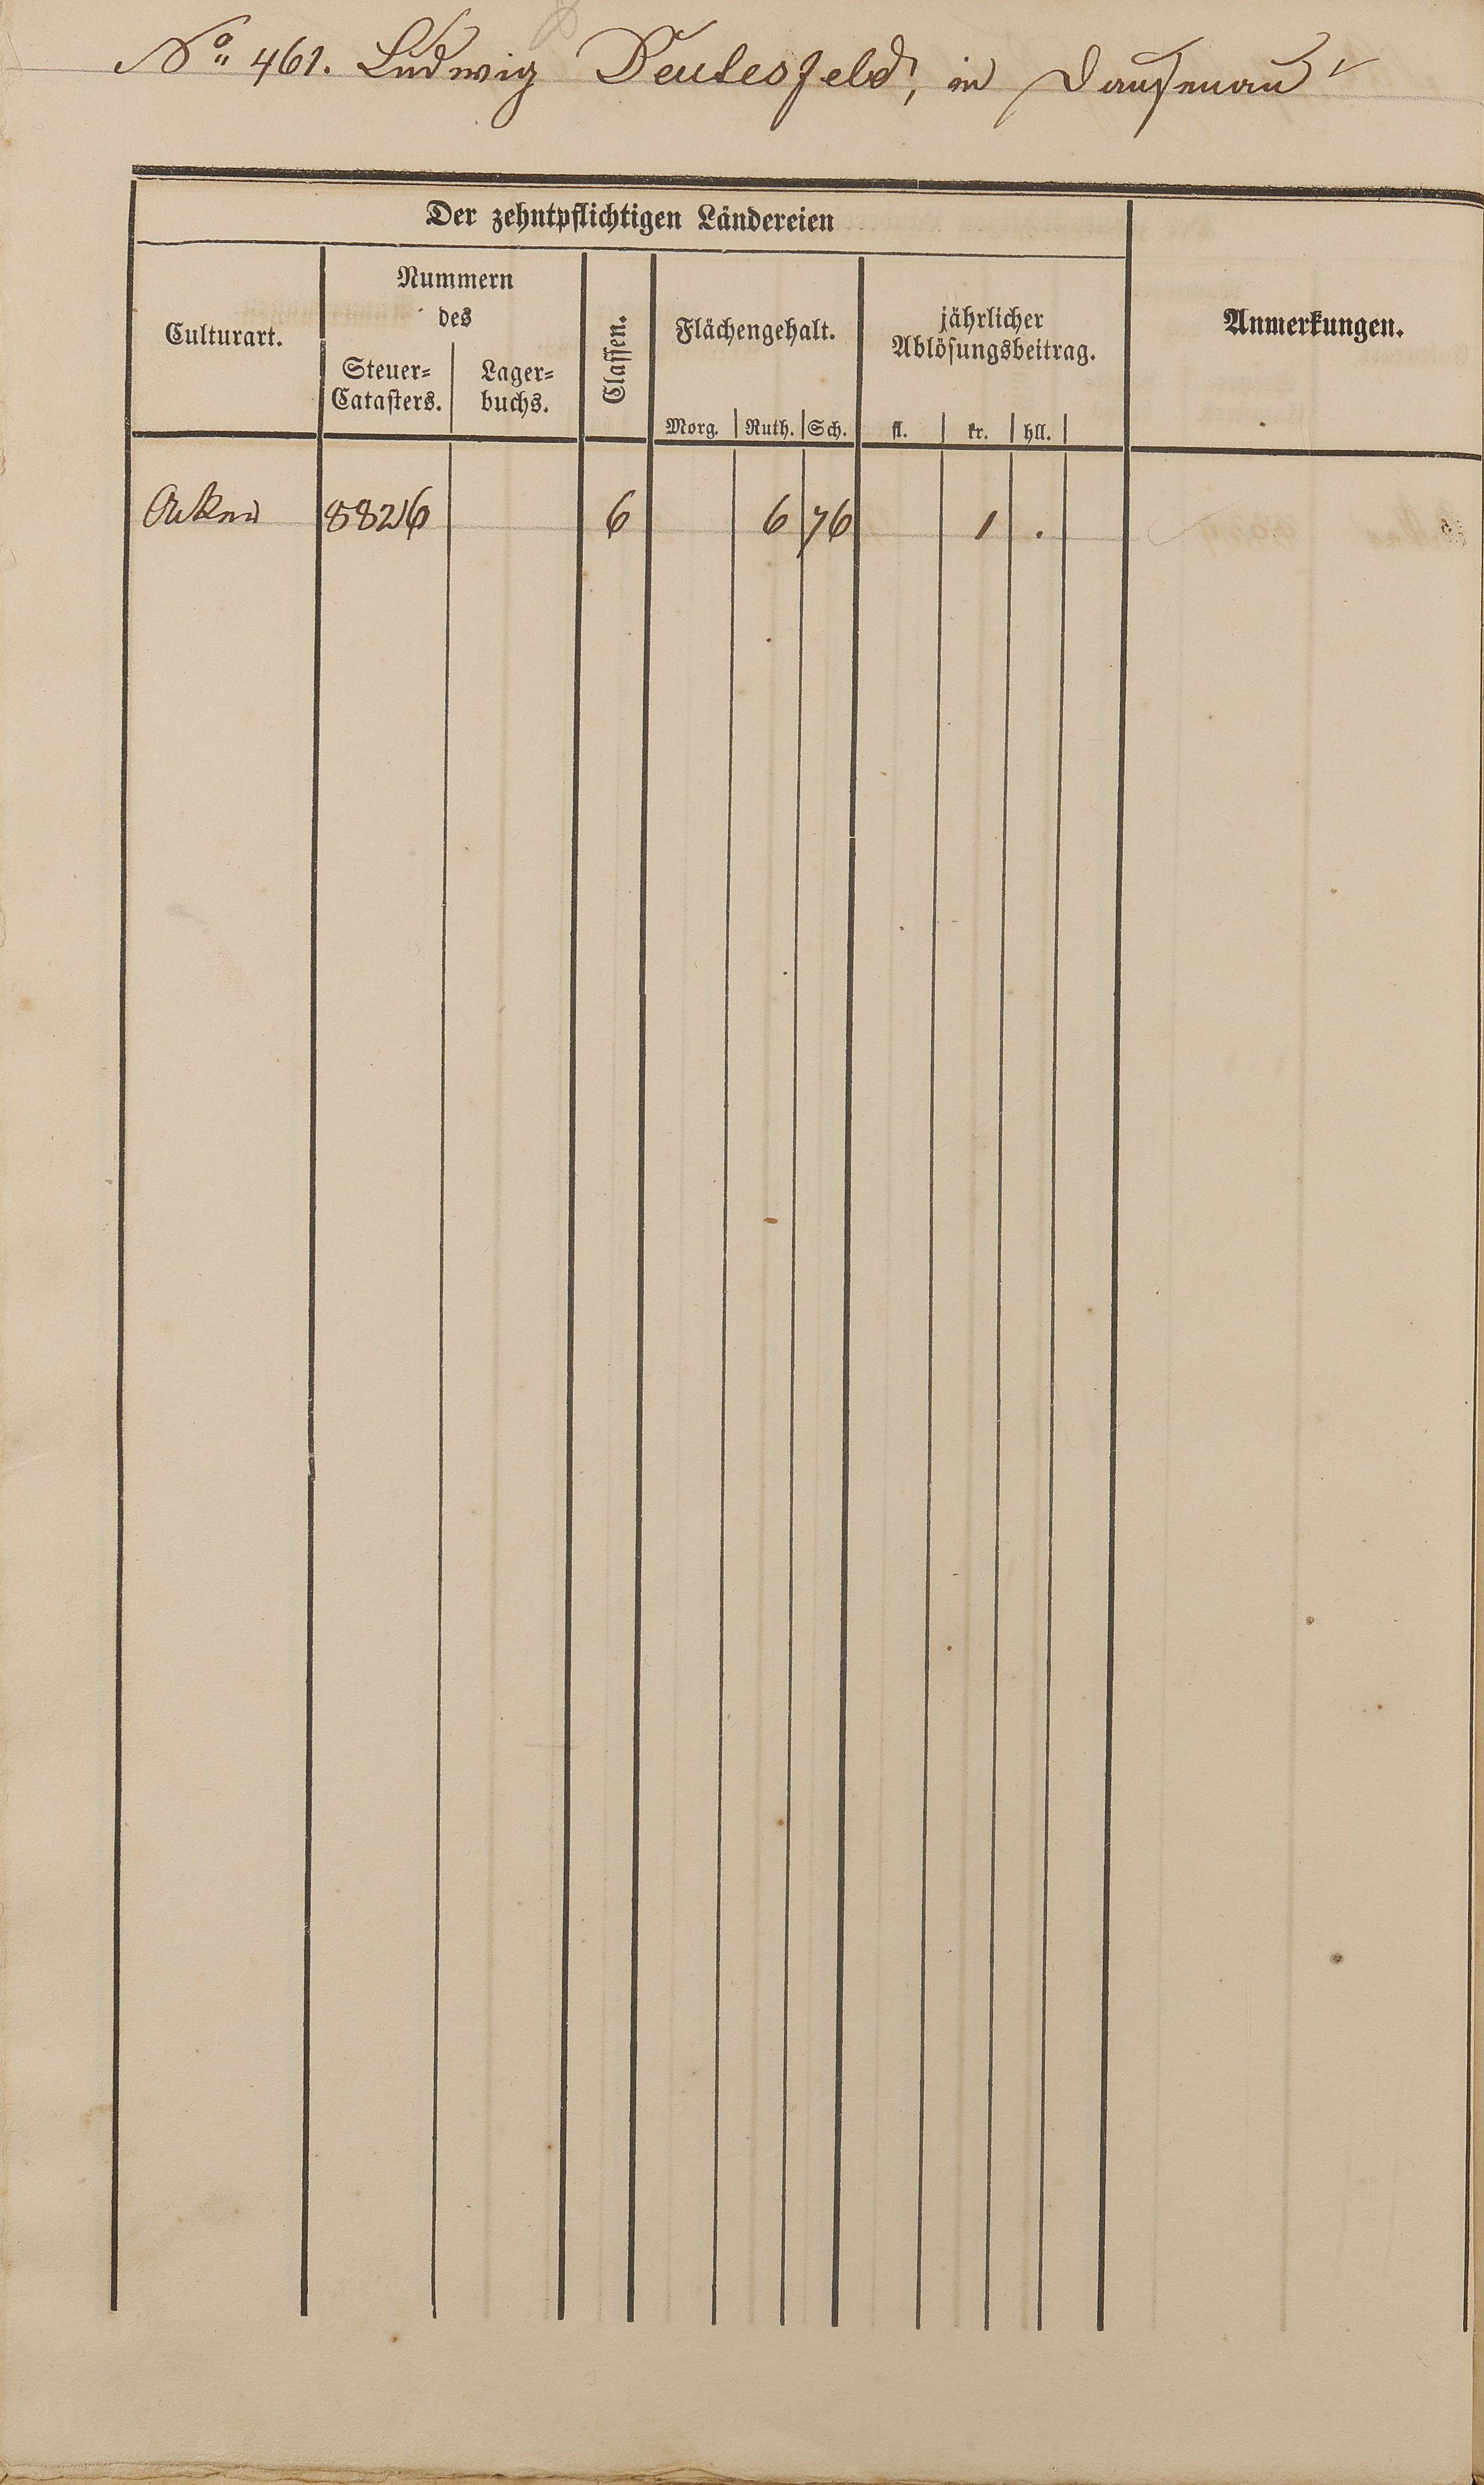 No. 461. Ludwig Deutesfeld, in Dausenau
Der zehntpflichtigen Ländereien
Culturart.
Nummern
des
Steuer=
Catasters.
Lager=
buchs.
Classen.
Flächengehalt.
Morg. Ruth. Sch.
jährlicher
Ablösungsbeitrag.
fl. kr. hll.
Anmerkungen.
Acker 8826 6 6 76 1 .